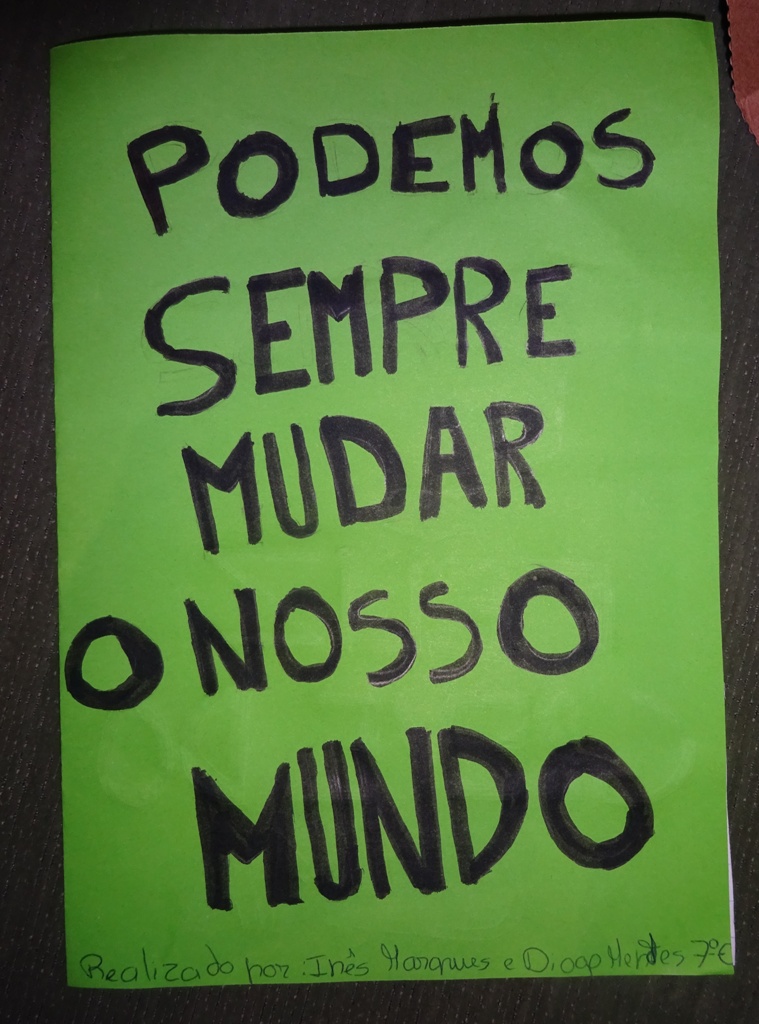 PODEMOS
SEMPRE
MUDAR
O NOSSO
MUNDO
Realizado por: Inês Marques e Diogo Mendes 7ºE